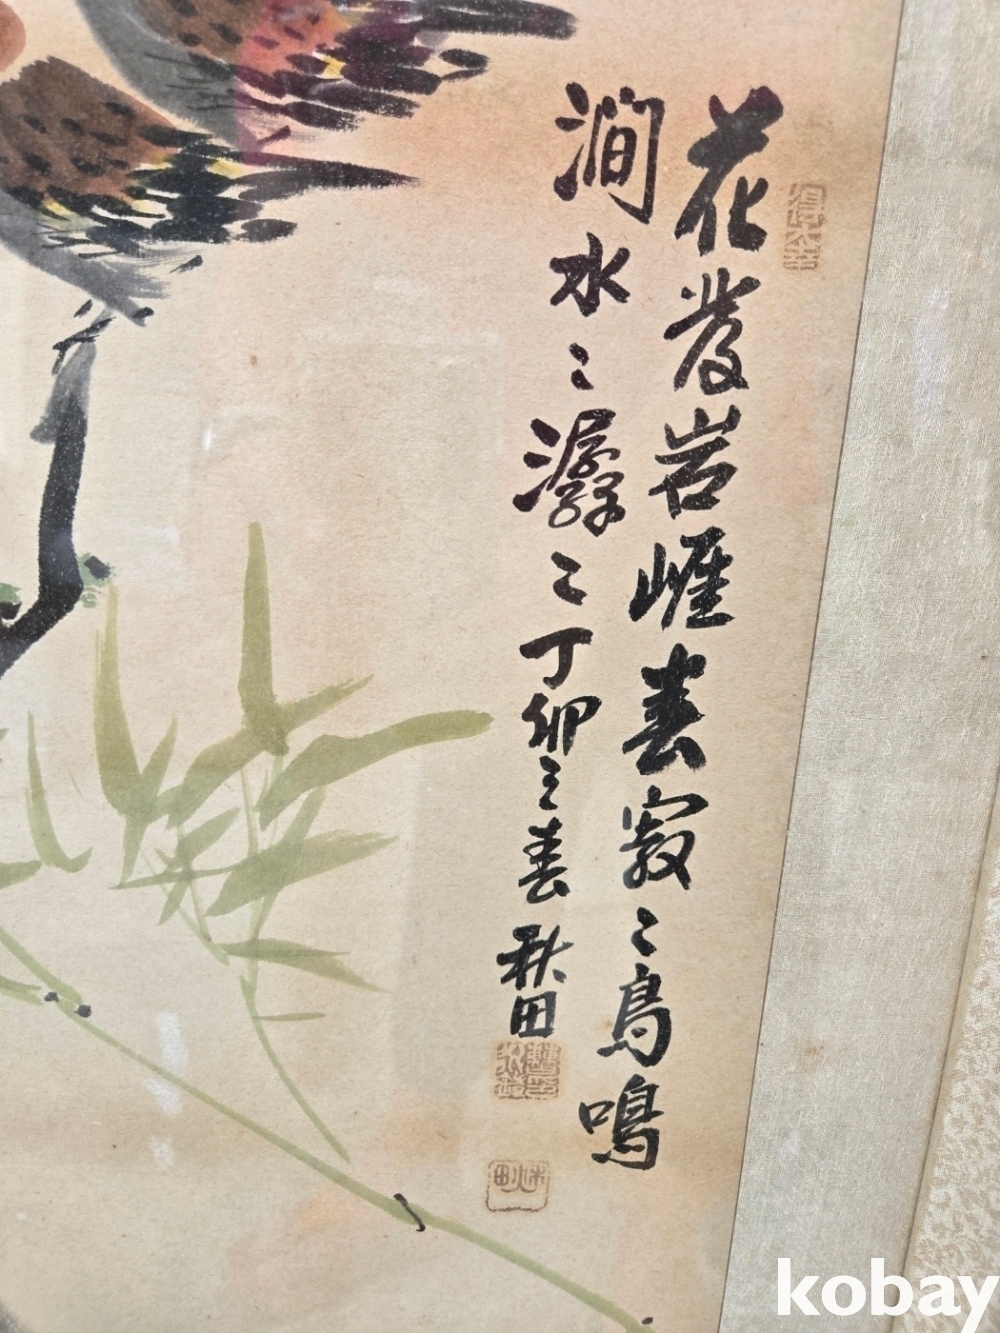 花發岩崖春寂〻鳥鳴
澗水〻潺〻丁卯之春
秋田
kobay